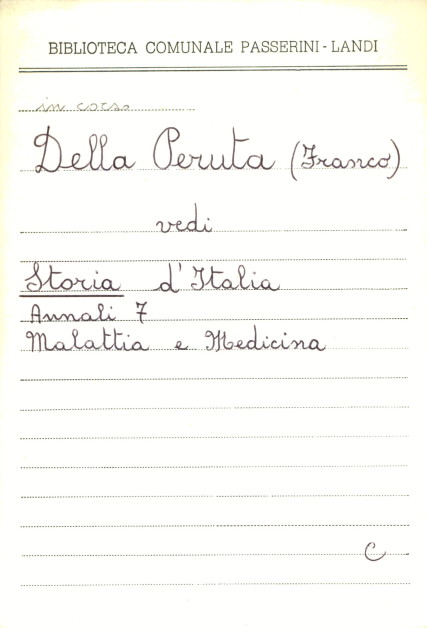 BIBLIOTECA COMUNALE PASSERINI - LANDI
in corso
Della Peruta (Franco)
vedi
Storia d'Italia
Annali 7
Malattia e Medicina
C